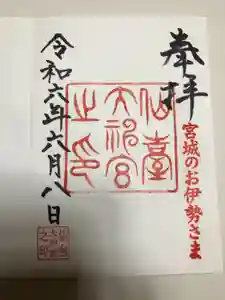 奉拝
宮城のお伊勢さま
仙臺
大神宮
之印
令和六年六月八日